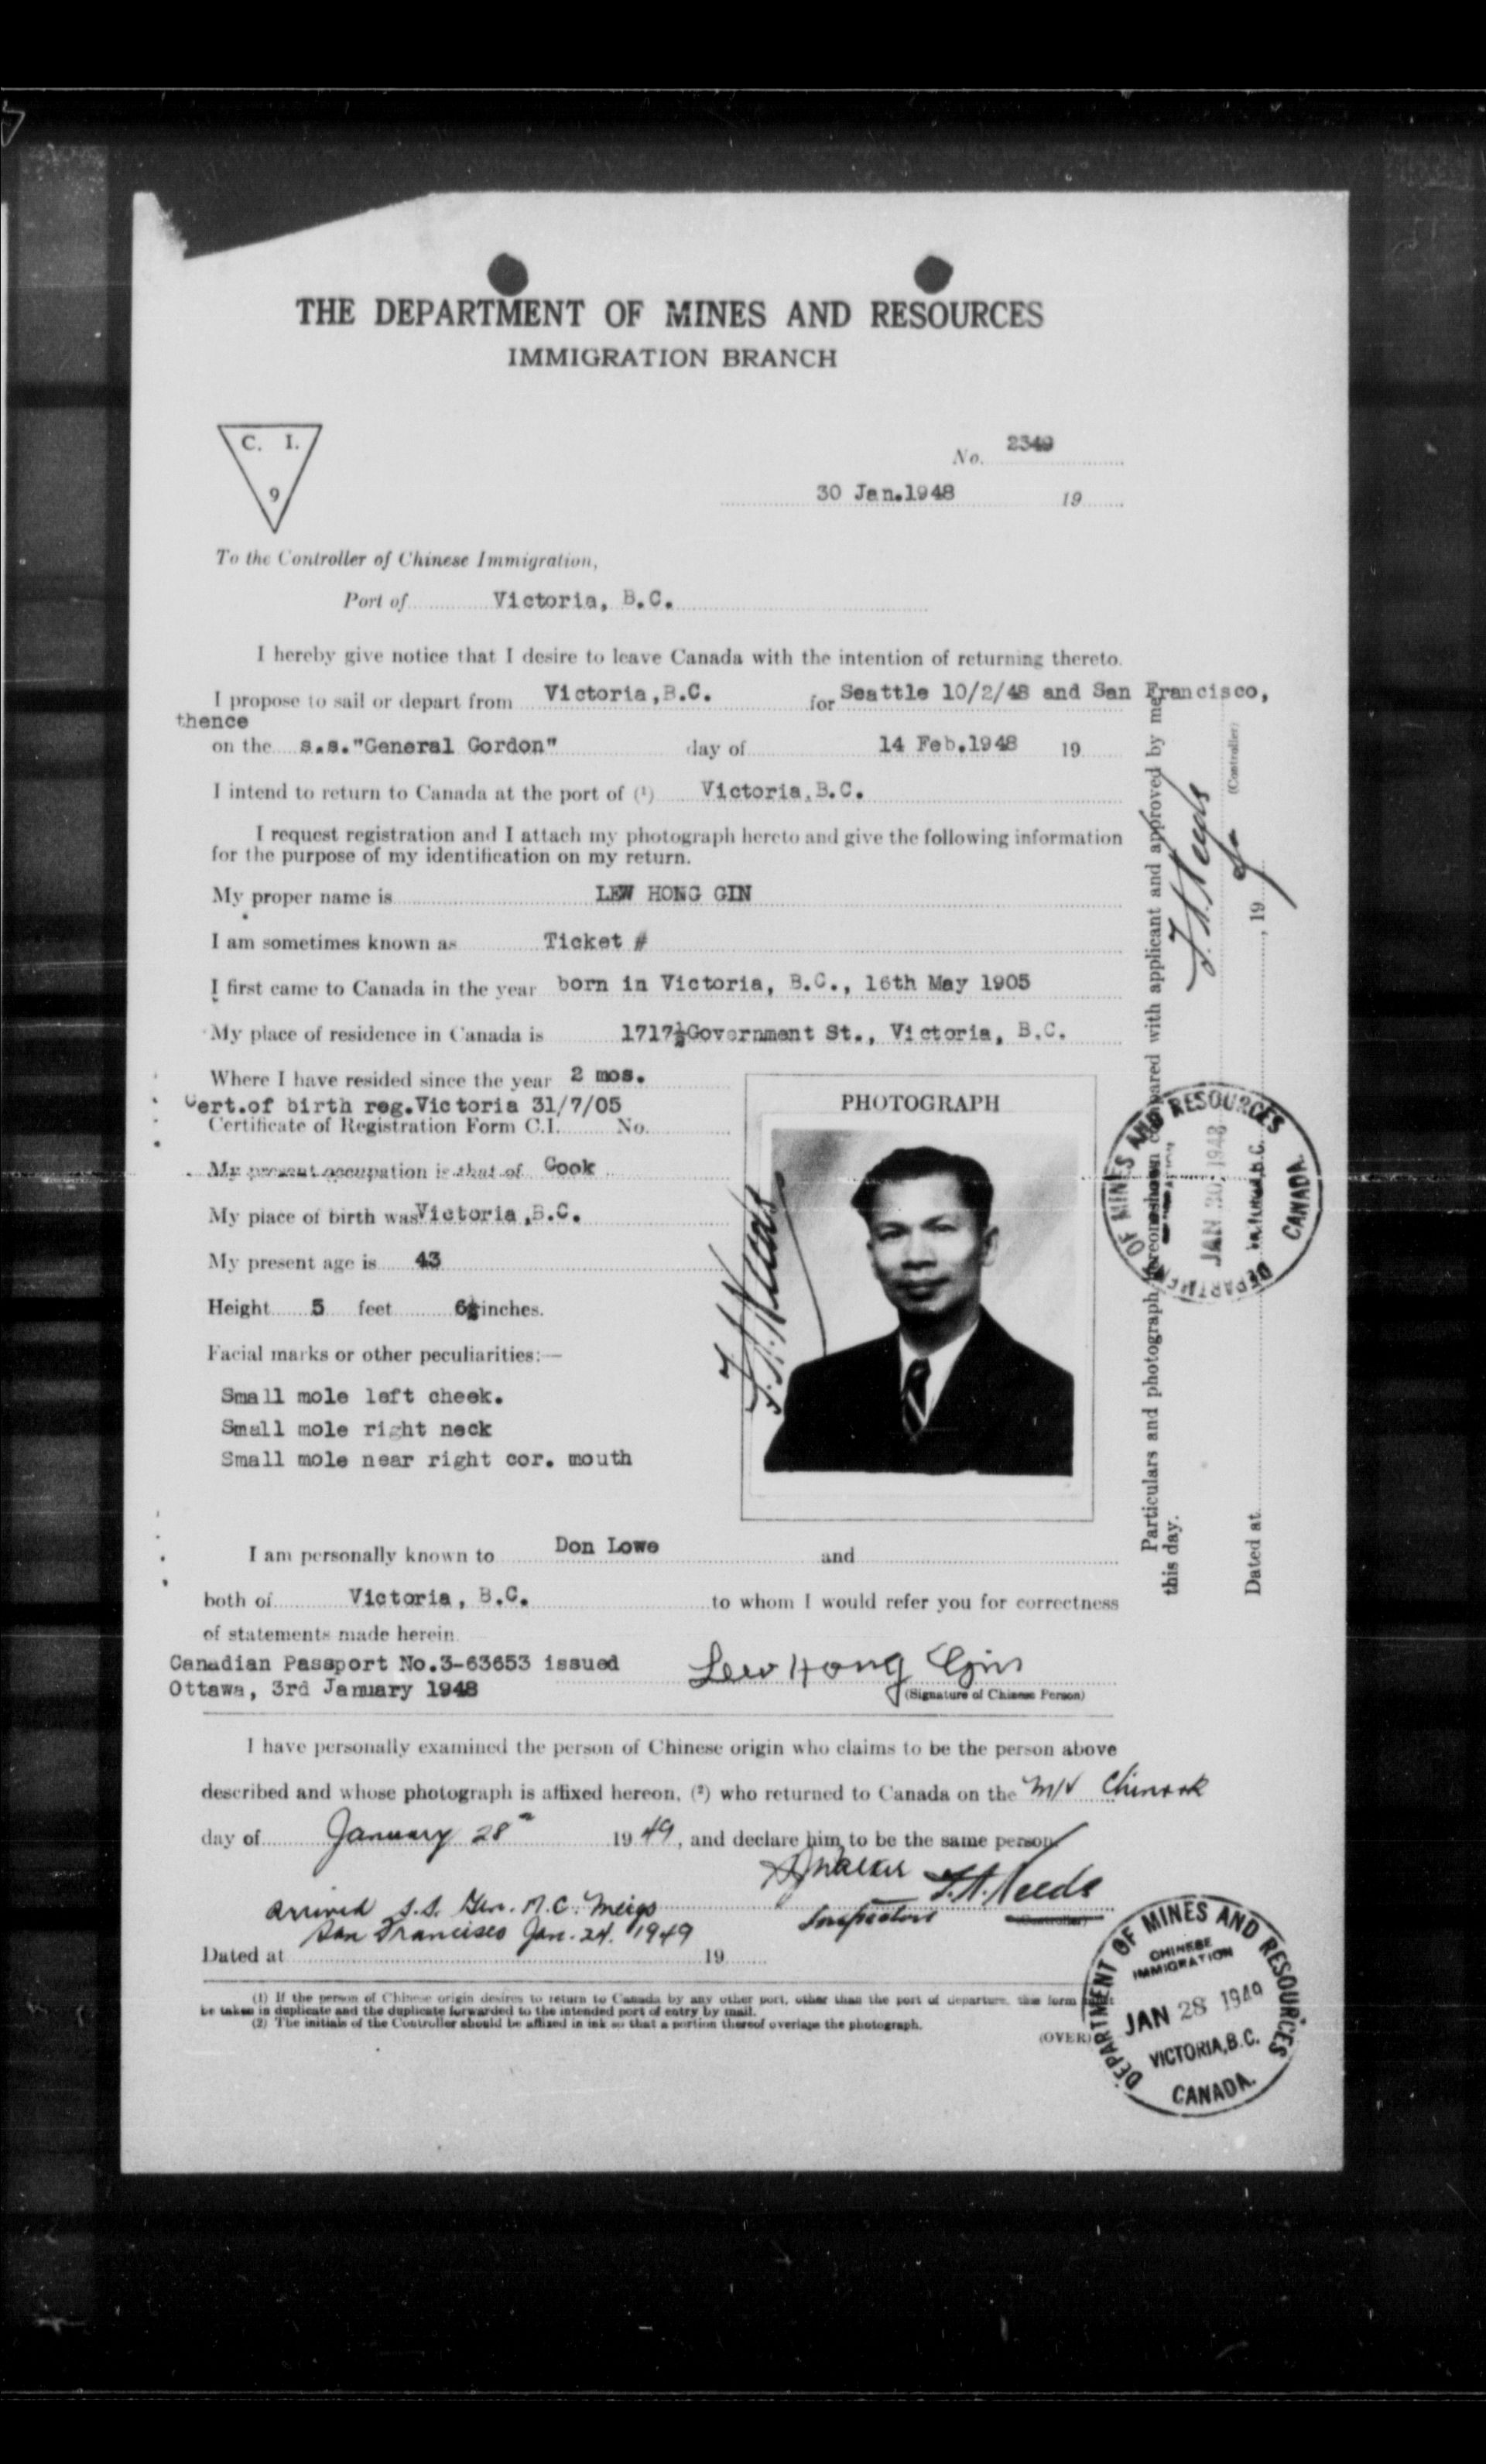 THE DEPARTMENT OF MINES AND RESOURCES
IMMIGRATION BRANCH
C. I.
9
No. 2349
30 Jan.1948 19
To the Controller of Chinese Immigration,
Port of Victoria, B.C.
I hereby give notice that I desire to leave Canada with the intention of returning thereto.
I propose to sail or depart from Victoria,B.C. for Seattle 10/2/48 and San Francisco,
thence
on the s.s."General Gordon" day of 14 Feb.1948 19
I intend to return to Canada at the port of (1) Victoria,B.C.
I request registration and I attach my photograph hereto and give the following information
for the purpose of my identification on my return.
My proper name is LEW HONG GIN
I am sometimes known as Ticket #
I first came to Canada in the year born in Victoria, B.C., 16th May 1905
My place of residence in Canada is 1717½Government St., Victoria, B.C.
Where I have resided since the year 2 mos.
Cert.of birth reg.Victoria 31/7/05
Certificate of Registration Form C.I. No.
My present occupation is that of Cook
My place of birth was Victoria,B.C.
My present age is 43
Height 5 feet 6½ inches.
Facial marks or other peculiarities:—
Small mole left cheek.
Small mole right neck
Small mole near right cor. mouth
PHOTOGRAPH
I am personally known to Don Lowe and
both of Victoria, B.C. to whom I would refer you for correctness
of statements made herein.
Canadian Passport No.3-63653 issued
Ottawa, 3rd January 1948
Lew Hong Gin
(Signature of Chinese Person)
I have personally examined the person of Chinese origin who claims to be the person above
described and whose photograph is affixed hereon, (2) who returned to Canada on the M/V Chinook
day of January 28th 1949, and declare him to be the same person.
Walker F.A. Needs
Inspectors (Controller)
arrived S.S. Gen. M.C. Meigs
San Francisco Jan. 24. 1949
Dated at 19
(1) If the person of Chinese origin desires to return to Canada by any other port, other than the port of departure, this form must
be taken in duplicate and the duplicate forwarded to the intended port of entry by mail.
(2) The initials of the Controller should be affixed in ink so that a portion thereof overlaps the photograph.
(OVER)
DEPARTMENT OF MINES AND RESOURCES
CHINESE
IMMIGRATION
JAN 28 1949
VICTORIA,B.C.
CANADA.
Particulars and photograph hereon shewn compared with applicant and approved by me
this day.
Dated at , 19
(Controller)
DEPARTMENT OF MINES AND RESOURCES
JAN 30 1948
CANADA.